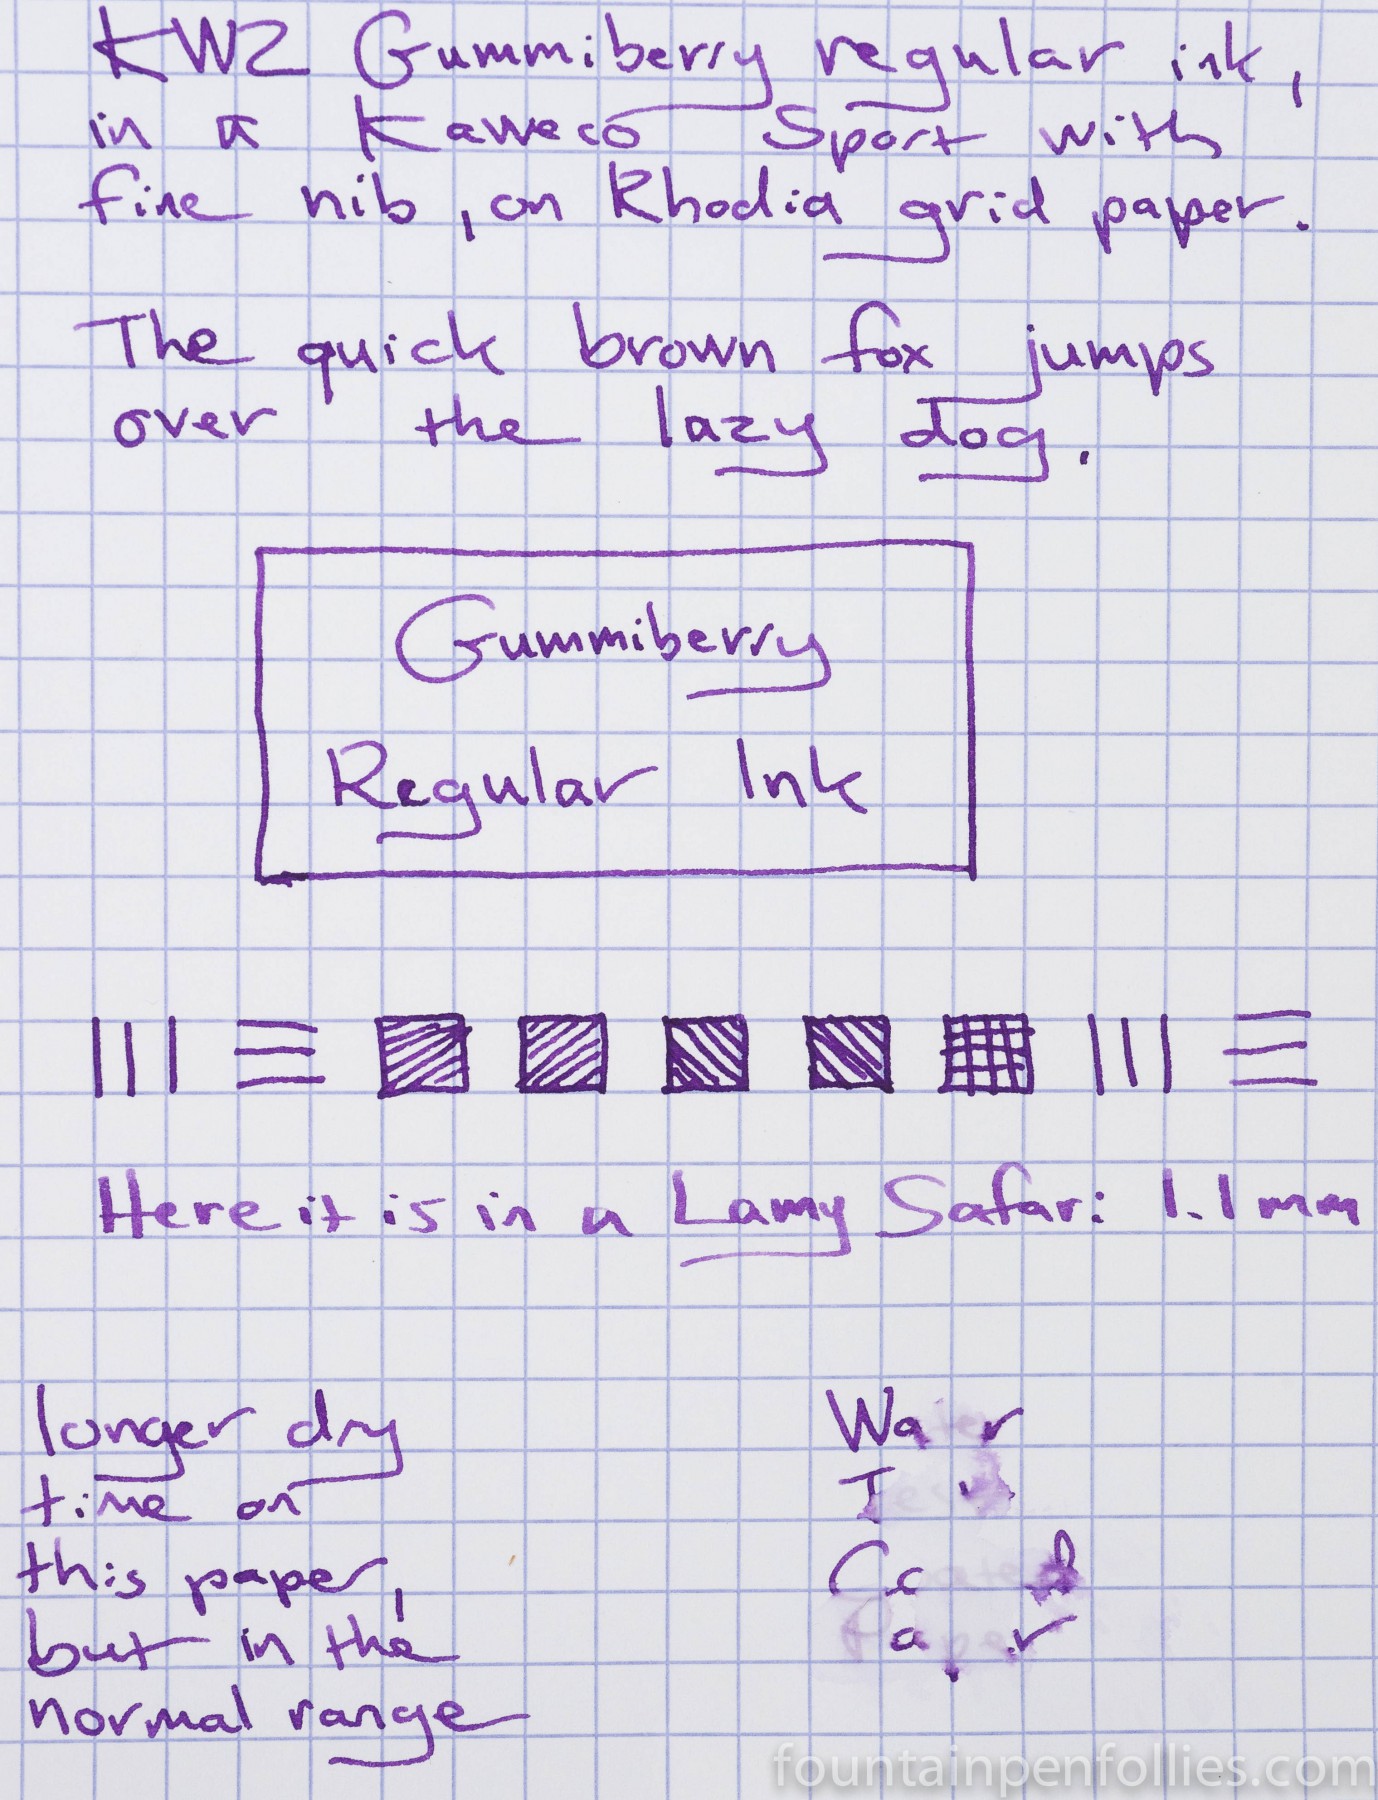 KWZ Gummiberry regular ink,
in a Kaweco Sport with
fine nib, on Rhodia grid paper.
The quick brown fox jumps
over the lazy dog.
Gummiberry
Regular Ink
Here it is in a Lamy Safari 1.1mm
longer dry
time on
this paper,
but in the
normal range
Water
Test
Coated
Paper
fountainpenfollies.com